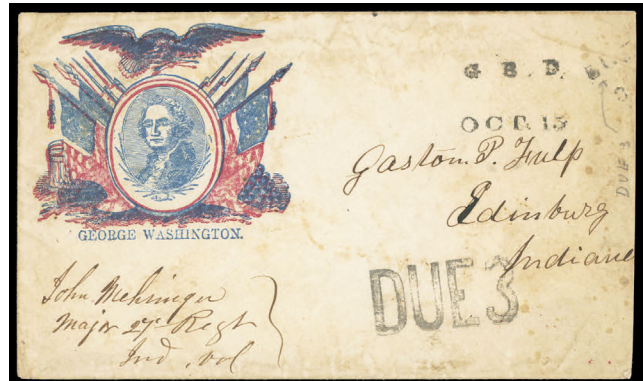 G. B. D.
OCT. 15
Gaston. P. Fulp
Edinburg
Indiana
DUE 3
DUE 3
GEORGE WASHINGTON.
John Mehringer
Major 27" Regt
Ind. vol